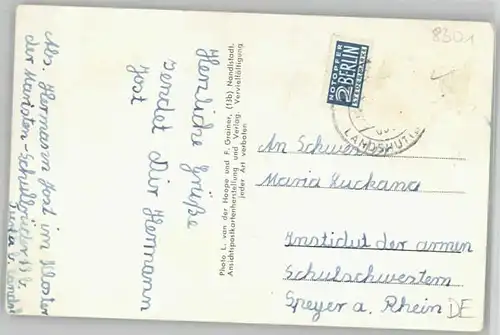 Abs. Hermann Jost im Kloster
der Maristen-Schulbrüder
Furth b. Landsh.
Herzliche Grüße
sendet Dir Hermann
Jost
Photo L. van der Hoope und F. Grainer, (13b) Nandlstadt.
Ansichtspostkartenherstellung und Verlag. Vervielfältigung
jeder Art verboten
NOTOPFER
2 BERLIN
STEUERMARKE
LANDSHUT
8301
An Schwester
Maria Luckana
Institut der armen
Schulschwestern
Speyer a. Rhein DE